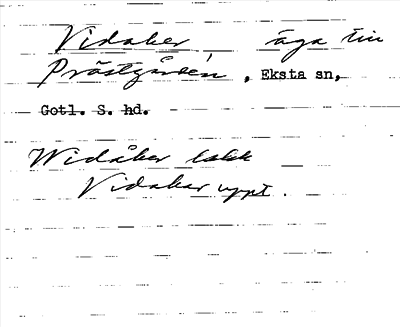 Vidaker äga till
Prästgården, Eksta sn,
Gotl. S. hd.
Widåker lskk
Vidakar uppt.